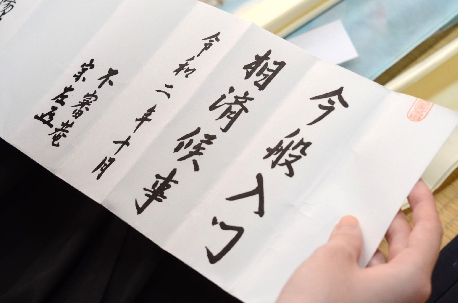 今般入門
相済候事
令和二年十月
不審菴
宗左